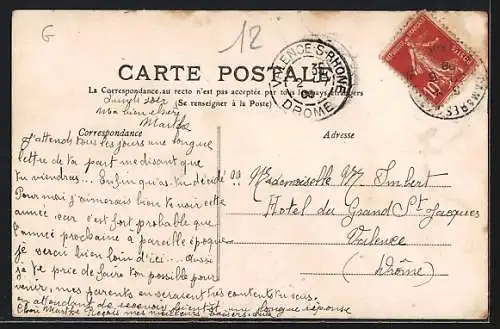 G
12
CARTE POSTALE
La Correspondance au recto n'est pas acceptée par tous les pays étrangers
(Se renseigner à la Poste)
VALENCE-S-RHONE
DROME
10
Ma bien chère
Marthe
Correspondance
Adresse
J'attends tous les jours une longue
lettre de ta part me disant que
tu viendras... Enfin qu'as-tu décidé ??
Pour moi j'aimerais bien te voir cette
année car c'est fort probable que
l'année prochaine à pareille époque
je serai bien loin d'ici... aussi
je te prie de faire ton possible pour
venir, mes parents en seraient très contents tu sais.
en attendant de recevoir une longue réponse
Chère Marthe Reçois mes meilleurs baisers.
Mademoiselle M. Imbert
Hotel du Grand St Jacques
Valence
(Drôme)